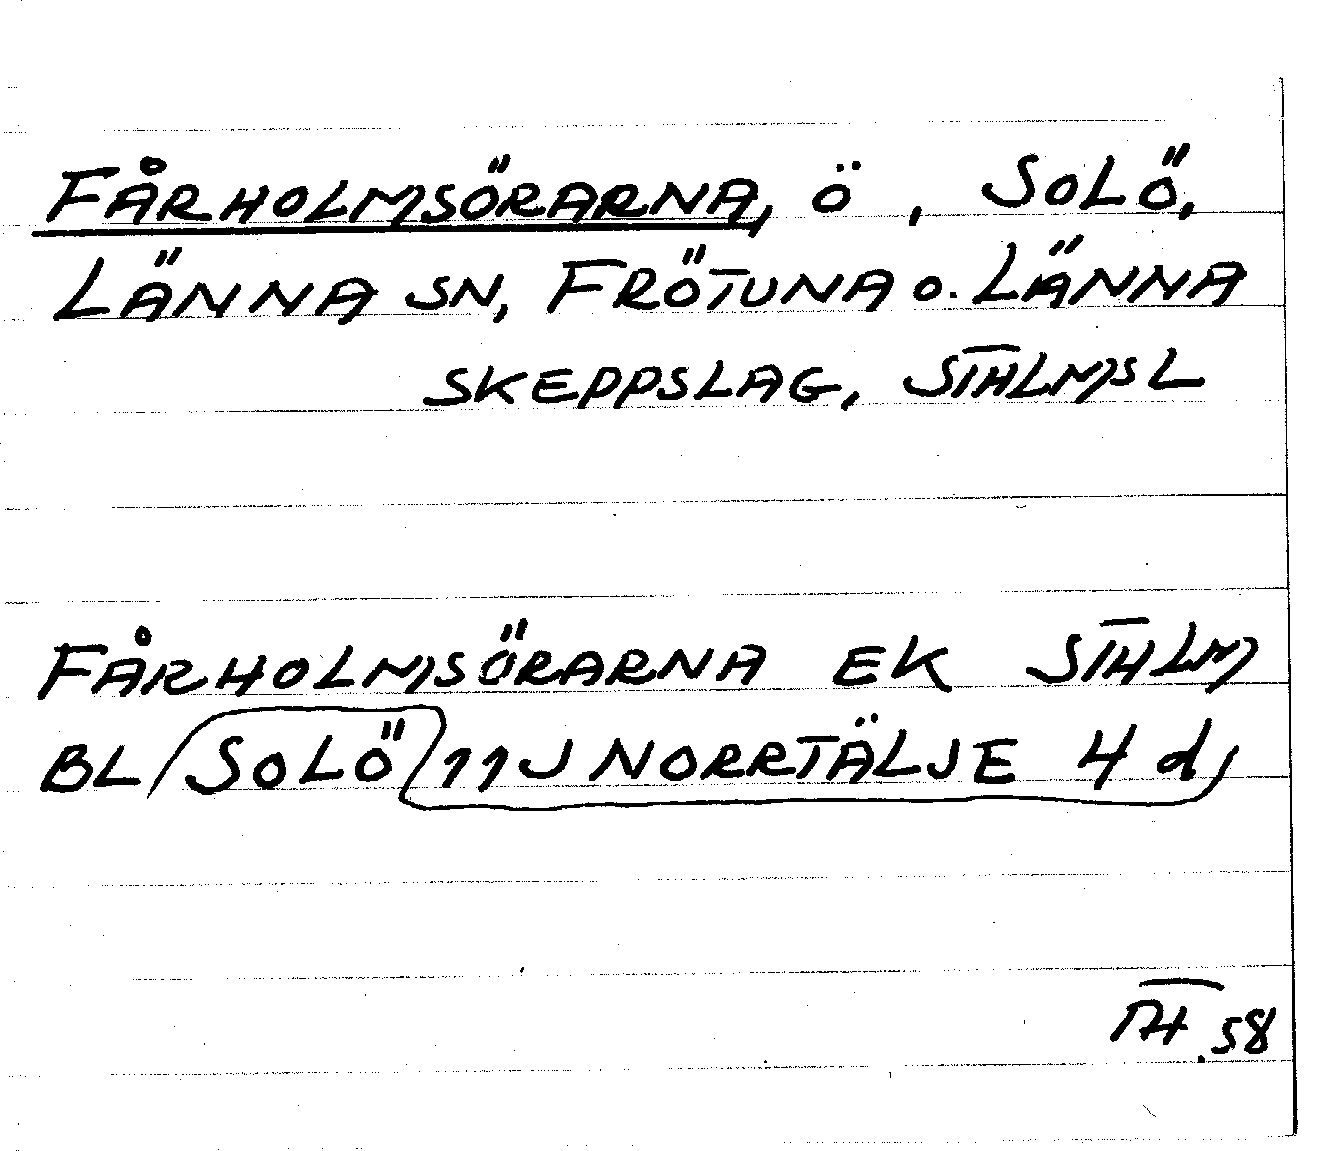 FÅRHOLMSÖRARNA, Ö, SOLÖ,
LÄNNA SN, FRÖTUNA O. LÄNNA
SKEPPSLAG, STHLMS L
FÅRHOLMSÖRARNA EK STHLM
BL SOLÖ 11J NORRTÄLJE 4 d,
TH.58